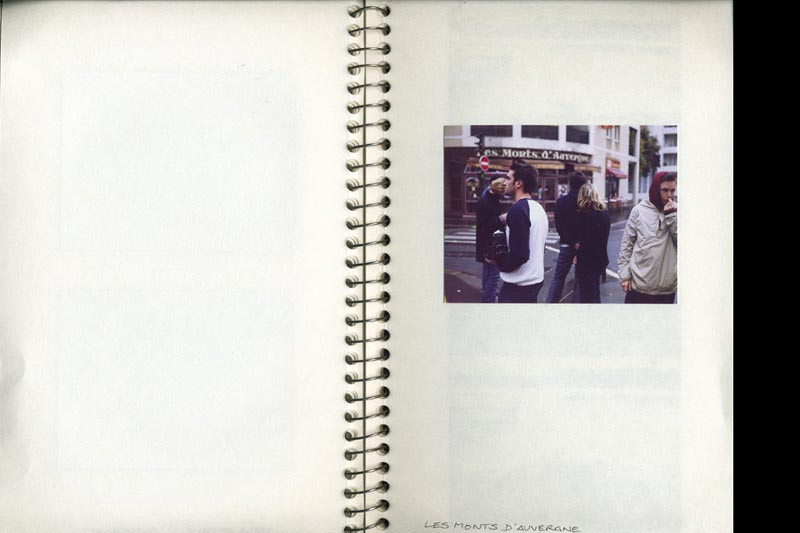 Les Monts d'Auvergne
LES MONTS D'AUVERGNE